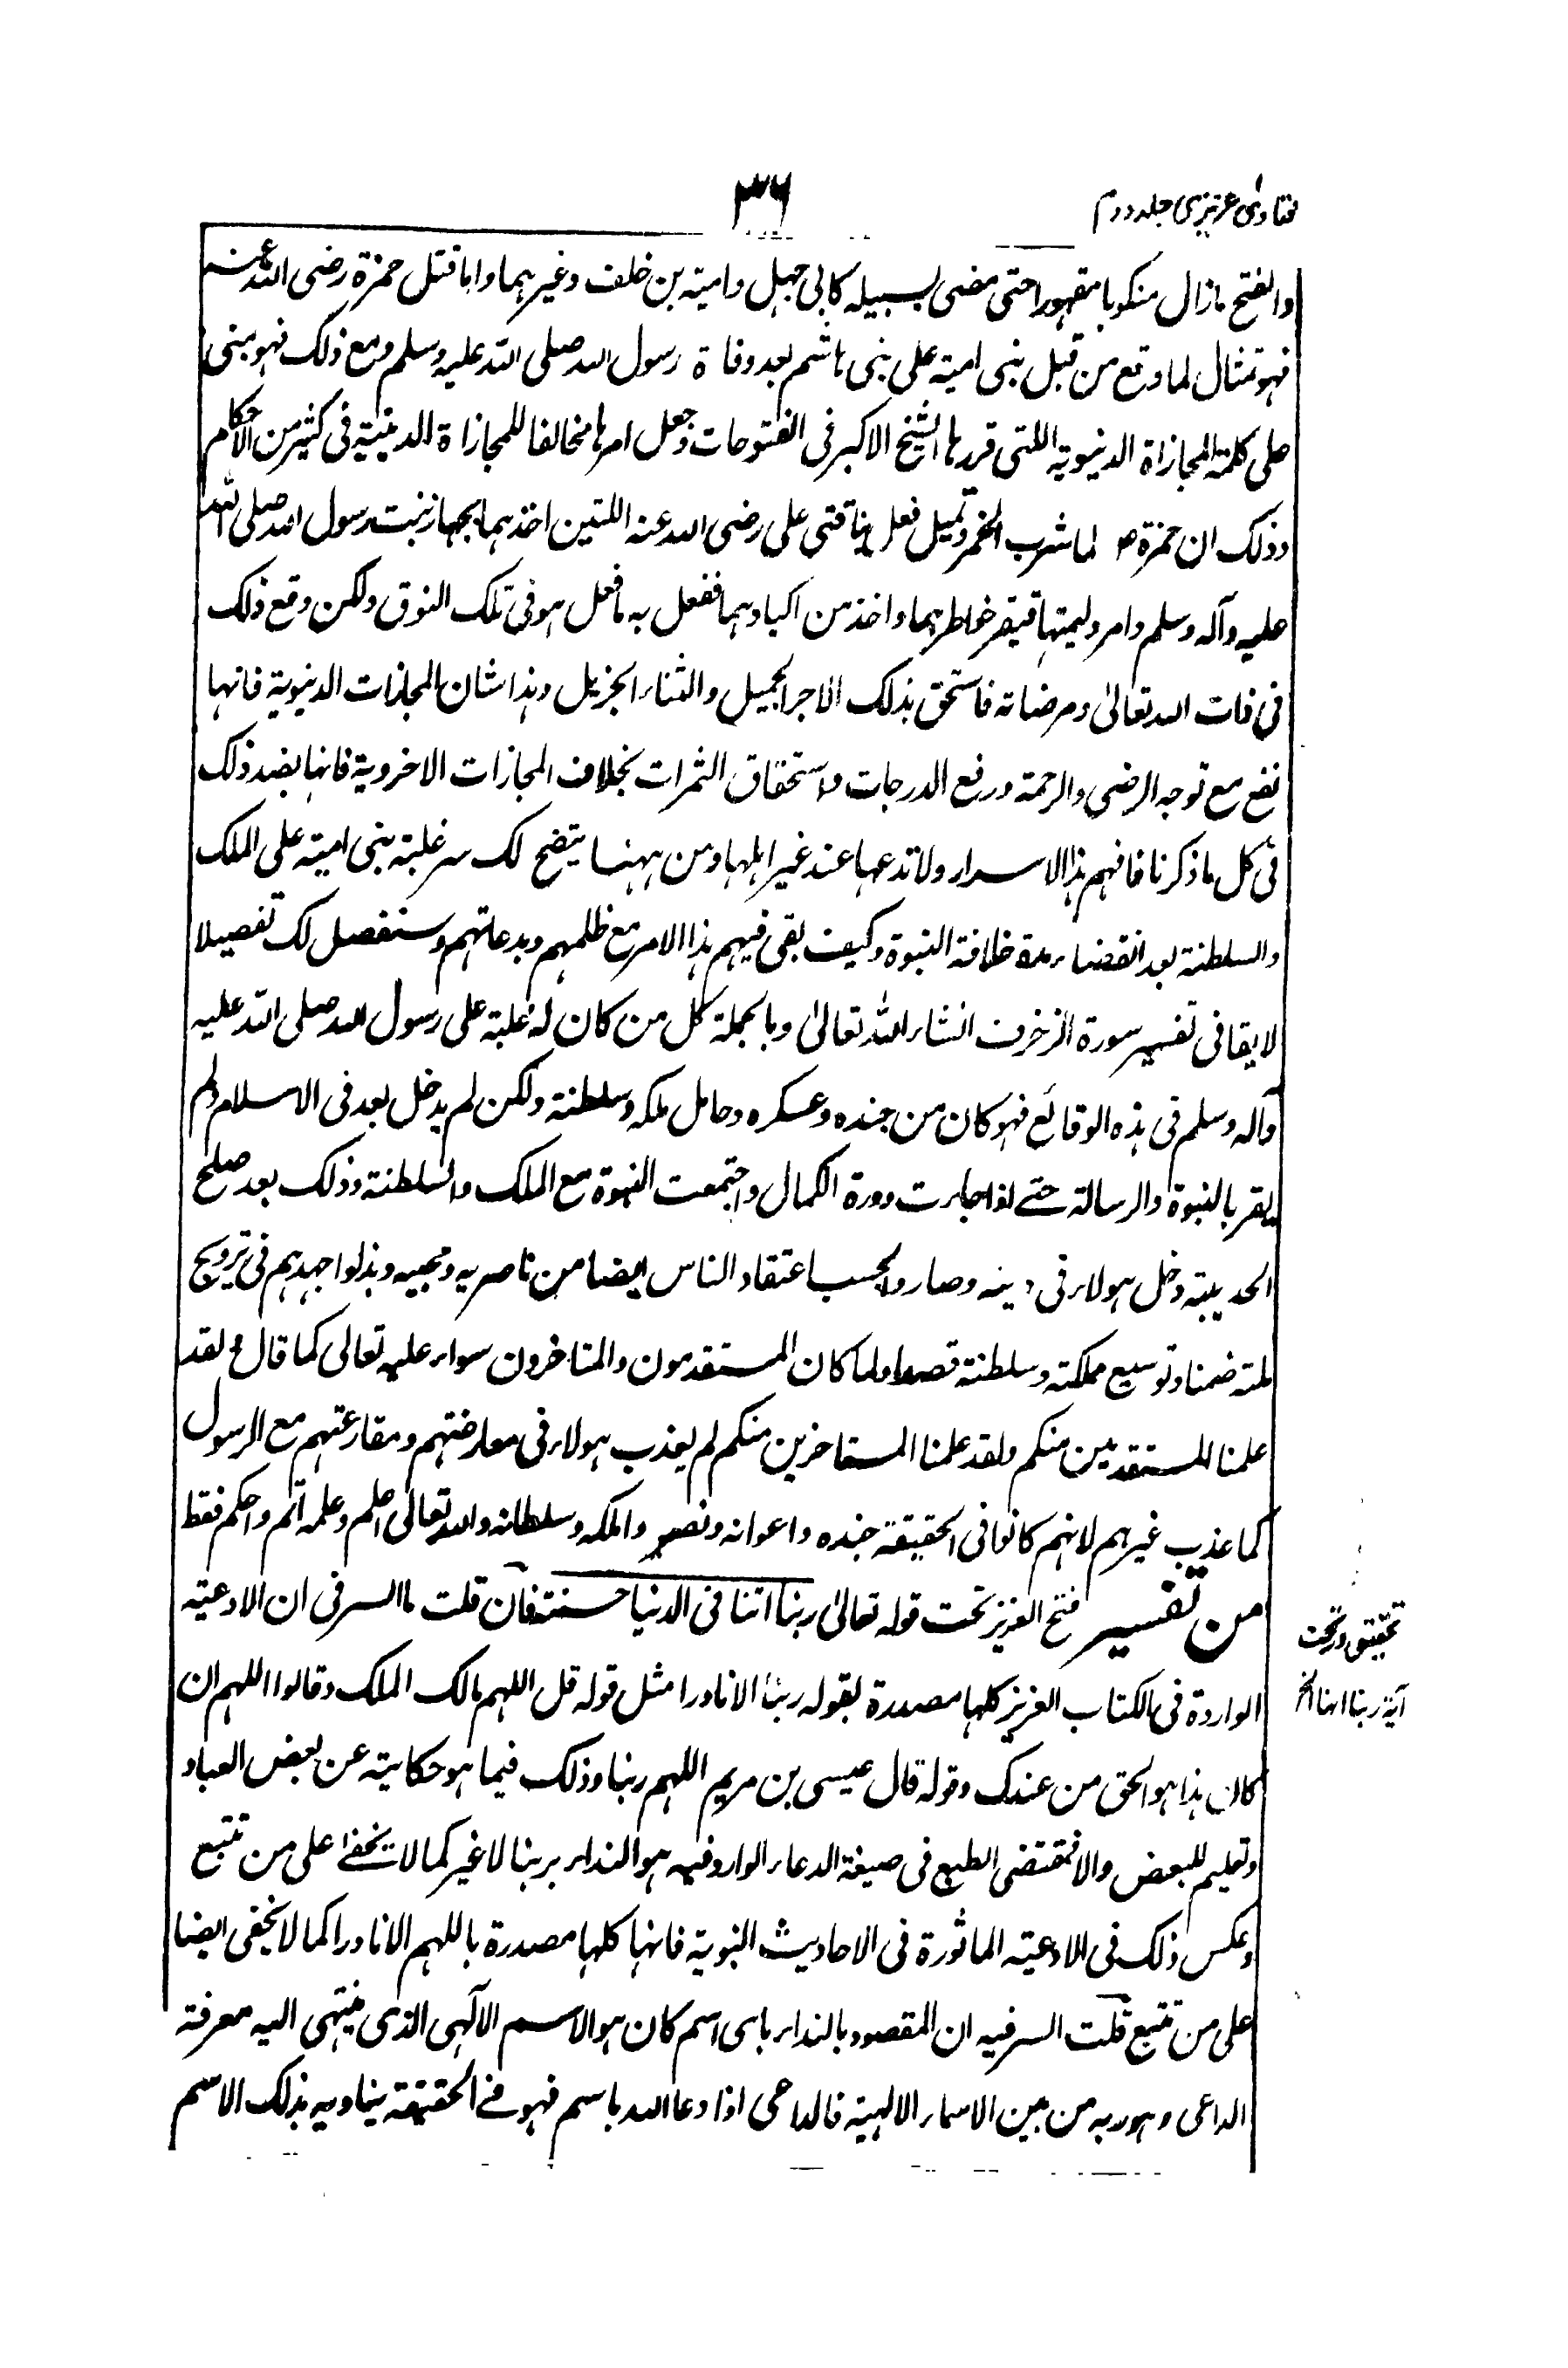 فتاوی عزیزی جلد دوم
۳۶
والفتح مازال منکوبا مقهورا حتی مضی بسبیله کابی جهل وامیة بن خلف وغیرهما واما قتل حمزة رضی الله عنه
فهو تمثال لما وقع من قبل بنی امیة علی بنی هاشم بعد وفاة رسول الله صلی الله علیه وسلم ومع ذلک فهو مبنی
علی کلمة المجازاة الدنیویة اللتی قررها الشیخ الاکبر فی الفتوحات وجعل امرها مخالفا للمجازاة الدینیة فی کثیر من الاحکام
وذلک ان حمزة رض لما شرب الخمر وثمیل فعل بناقتی علی رضی الله عنه اللتین اخذهما بجهاز بنت رسول الله صلی الله
علیه وآله وسلم وامر ولیمتها فبقر خواطرهما واخذ من اکبادهما ففعل به ما فعل هو فی تلک النوق ولکن وقع ذلک
فی ذات الله تعالیٰ ومرضاته فاستحق بذلک الاجر الجمیل والثناء الجزیل وهذا شان المجازات الدنیویة فانها
نفع مع توجه الرضی والرحمة ورفع الدرجات واستحقاق الثمرات بخلاف المجازات الاخرویة فانها بضد ذلک
فی کل ما ذکرنا فافهم هذا الاسرار ولا تدعها عند غیر اهلها ومن ههنا یتضح لک سر غلبة بنی امیة علی الملک
والسلطنة بعد انقضاء مدة خلافة النبوة وکیف بقی فیهم هذا الامر مع ظلمهم وبدعاتهم وسنفصل لک تفصیلا
لایقا فی تفسیر سورة الزخرف انشاء الله تعالیٰ وبالجملة کل من کان له غلبة علی رسول الله صلی الله علیه
وآله وسلم فی هذه الوقائع فهو کان من جنده وعسکره وحامل ملکه وسلطنة ولکن لم یدخل بعد فی الاسلام ولم
یقر بالنبوة والرسالة حتے اذا جاءت دورة الکمال واجتمعت النبوة مع الملک والسلطنة وذلک بعد صلح
الحدیبیة دخل هولاء فی دینه وصاروا بحسب اعتقاد الناس ایضا من ناصریه ومحبیه وبذلوا جهدهم فی ترویج
ملته ضمنا وتوسیع مملکته وسلطنة قصدا ولما کان المستقدمون والمتاخرون سواء علیه تعالی کما قال ولقد
علمنا المستقدمین منکم ولقد علمنا المستاخرین منکم لم یعذب هولاء فی معارضتهم ومقارعتهم مع الرسول
کما عذب غیرهم لانهم کانوا فی الحقیقة جنده واعوانه ونصروا ملکه وسلطانه والله تعالیٰ اعلم وعلمه اتم واحکم فقط
من تفسیر فتح العزیز تحت قوله تعالیٰ ربنا اتنا فی الدنیا حسنة فان قلت ما السر فی ان الادعیة
تحقیق در تحت
آیة ربنا اتنا الخ
الواردة فی الکتاب العزیز کلها مصدرة بقوله ربنا الا نادرا مثل قوله قل اللهم مالک الملک وقالوا اللهم ان
کان هذا هو الحق من عندک وقوله قال عیسی بن مریم اللهم ربنا وذلک فیما هو حکایة عن بعض العباد
وتعلیم للبعض والا فمقتضی الطبع فی صیغة الدعاء الوارد فیه هو النداء بربنا لا غیر کما لا یخفے علی من تتبع
وعکس ذلک فی الادعیة الماثورة فی الاحادیث النبویة فانها کلها مصدرة باللهم الا نادرا کما لا یخفی ایضا
علی من تتبع قلت السر فیه ان المقصود بالنداء بای اسم کان هو الاسم الآلهی الذی ینتهی الیه معرفة
الداعی وهو ربه من بین الاسماء الالهیة فالداعی اذا دعا الله باسم فهو فے الحقیقة ینادیه بذلک الاسم